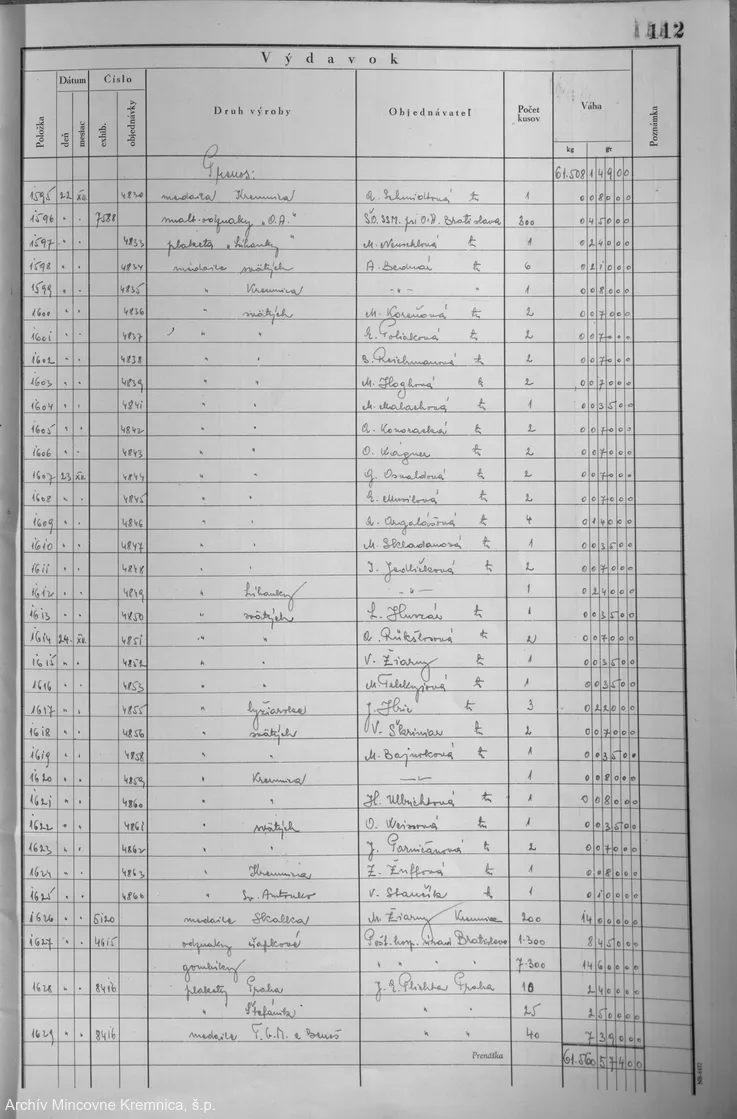 112
Výdavok
Položka Dátum deň mesiac Číslo exhib. objednávky Druh výroby Objednávateľ Počet kusov Váha kg gr Poznámka
Prenos: 61.508 1 4 9 0 0
1595 22 XII. 4830 medaila Kremnica Schmidtová 1 0 0 8 0 0 0
1596 " " 7588 smalt. odznaky "O.A." Bratislava 300 0 4 5 0 0 0
1597 " " 4833 plaketa "Lihanky" M. 1 0 2 4 0 0 0
1598 " " 4834 medaila svätých A. Bednár 6 0 2 1 0 0 0
1599 " " 4835 " Kremnica -"- " 1 0 0 8 0 0 0
1600 " " 4836 " svätých M. Koreňová 2 0 0 7 0 0 0
1601 " " 4837 " " Poliaková 2 0 0 7 0 0 0
1602 " " 4838 " " Reichmanová 2 0 0 7 0 0 0
1603 " " 4839 " " M. 2 0 0 7 0 0 0
1604 " " 4841 " " M. Malachová 1 0 0 3 5 0 0
1605 " " 4842 " " 2 0 0 7 0 0 0
1606 " " 4843 " " O. Wágner 2 0 0 7 0 0 0
1607 23 XII. 4844 " " G. Osvaldová 2 0 0 7 0 0 0
1608 " " 4845 " " 2 0 0 7 0 0 0
1609 " " 4846 " " 4 0 1 4 0 0 0
1610 " " 4847 " " M. Skladanová 1 0 0 3 5 0 0
1611 " " 4848 " " J. Jedličková 2 0 0 7 0 0 0
1612 " " 4849 " Lihanky -"- 1 0 2 4 0 0 0
1613 " " 4850 " svätých L. Huszár 1 0 0 3 5 0 0
1614 24. XII. 4851 " " 2 0 0 7 0 0 0
1615 " " 4852 " " V. Žiarny 1 0 0 3 5 0 0
1616 " " 4853 " " M. 1 0 0 3 5 0 0
1617 " " 4855 " lyžiarska J. 3 0 2 2 0 0 0
1618 " " 4856 " svätých V. Škriniar 2 0 0 7 0 0 0
1619 " " 4858 " " M. Bajusková 1 0 0 3 5 0 0
1620 " " 4859 " Kremnica -"- 1 0 0 8 0 0 0
1621 " " 4860 " " H. Ulbrichtová 1 0 0 8 0 0 0
1622 " " 4861 " svätých O. Weissová 1 0 0 3 5 0 0
1623 " " 4862 " " J. Parničanová 2 0 0 7 0 0 0
1624 " " 4863 " Kremnica Z. Žuffová 1 0 0 8 0 0 0
1625 " " 4866 " Sv. Antonko V. Stančík 1 0 1 0 0 0 0
1626 " " 5120 medaila Skalka M. Žiarny Kremnica 200 14 0 0 0 0 0
1627 " " 4615 odznaky čiapkové Bratislava 1·300 8 4 5 0 0 0
gombíky " " " 7·300 14 6 0 0 0 0
1628 " " 8416 plakety Praha Plichta Praha 10 2 4 0 0 0 0
" Štefánik " " 25 2 5 0 0 0 0
1629 " " 8416 medaila T.G.M. a Beneš " " 40 7 3 9 0 0 0
Prenáška 61.560 5 7 4 0 0
Archív Mincovne Kremnica, š.p.